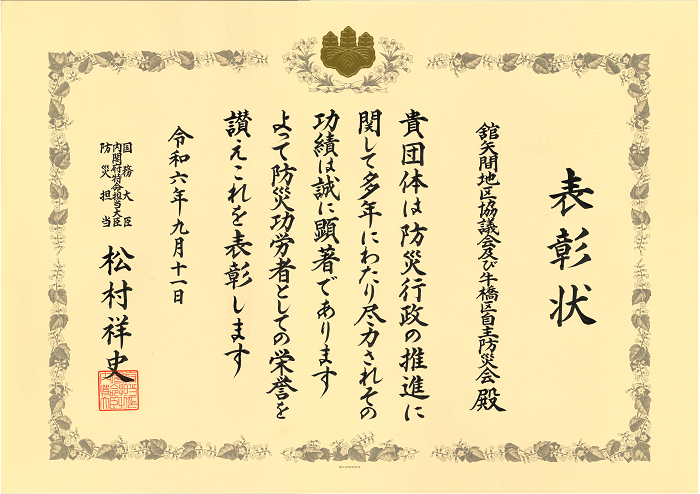 表彰状
舘矢間地区協議会及び牛橋区自主防災会 殿
貴団体は防災行政の推進に
関して多年にわたり尽力されその
功績は誠に顕著であります
よって防災功労者としての栄誉を
讃えこれを表彰します
令和六年九月十一日
国務大臣
内閣府特命担当大臣
防災担当
松村祥史